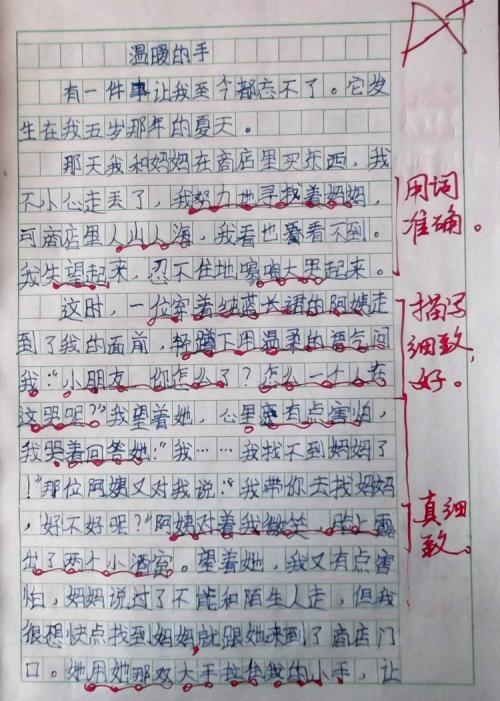 温暖的手
有一件事让我至今都忘不了。它发
生在我五岁那年的夏天。
那天我和妈妈在商店里买东西，我
不小心走丢了，我努力地寻找着妈妈，
可商店里人山人海，我看也看不到。
我失望起来，忍不住地嚎啕大哭起来。
用词
准确。
这时，一位穿着纯蓝长裙的阿姨走
到了我的面前，蹲下用温柔的语气问
我：“小朋友，你怎么了？怎么一个人在
这哭呢？”我望着她，心里有点害怕，
描写
细致，
好。
我哭着回答她：“我……我找不到妈妈了
！”那位阿姨又对我说：“我带你去找妈妈
，好不好呢？”阿姨对着我微笑，脸上露
出了两个小酒窝。望着她，我又有点害
真细
致。
怕，妈妈说过了不能和陌生人走，但我
很想快点找到妈妈，就跟她来到了商店门
口。她用她那双大手拉住我的小手，让